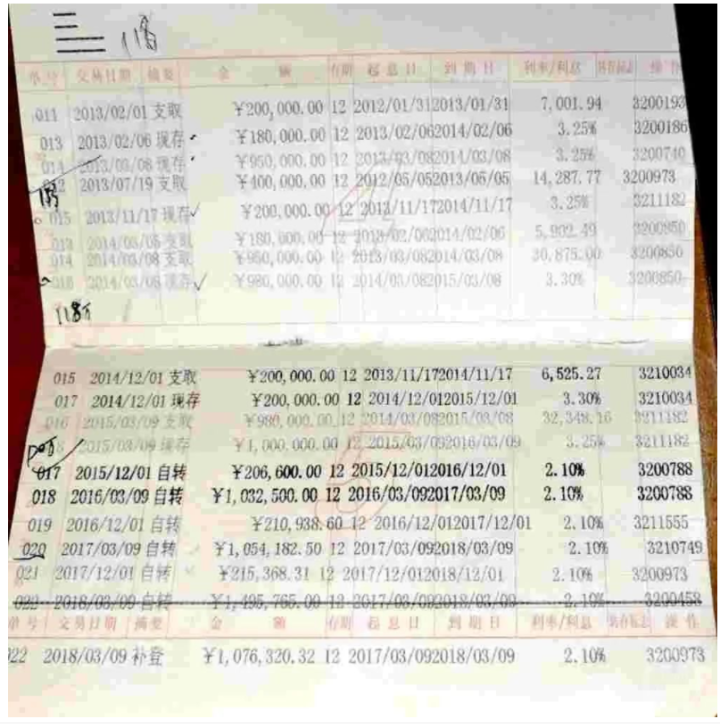 118
单号 交易日期 摘要 金 额 存期 起息日 到期日 利率/利息 操作
011 2013/02/01 支取 ¥200,000.00 12 2012/01/312013/01/31 7,001.94 3200193
013 2013/02/06 现存 ¥180,000.00 12 2013/02/062014/02/06 3.25% 3200186
014 2013/03/08 现存 ¥950,000.00 12 2013/03/082014/03/08 3.25% 3200740
2013/07/19 支取 ¥400,000.00 12 2012/05/052013/05/05 14,287.77 3200973
015 2013/11/17 现存 ¥200,000.00 12 2013/11/172014/11/17 3.25% 3211182
013 2014/03/08 支取 ¥180,000.00 12 2013/02/062014/02/06 3200850
014 2014/03/08 支取 ¥950,000.00 12 2013/03/082014/03/08 30,875.00 3200850
016 2014/03/08 现存 ¥980,000.00 12 2014/03/082015/03/08 3.30% 3200850
118万
015 2014/12/01 支取 ¥200,000.00 12 2013/11/172014/11/17 6,525.27 3210034
017 2014/12/01 现存 ¥200,000.00 12 2014/12/012015/12/01 3.30% 3210034
016 2015/03/09 支取 ¥980,000.00 12 2014/03/082015/03/08 32,348.16 3211182
2015/03/09 现存 ¥1,000,000.00 12 2015/03/092016/03/09 3.25% 3211182
017 2015/12/01 自转 ¥206,600.00 12 2015/12/012016/12/01 2.10% 3200788
018 2016/03/09 自转 ¥1,032,500.00 12 2016/03/092017/03/09 2.10% 3200788
019 2016/12/01 自转 ¥210,938.60 12 2016/12/012017/12/01 2.10% 3211555
020 2017/03/09 自转 ¥1,054,182.50 12 2017/03/092018/03/09 2.10% 3210749
021 2017/12/01 自转 ¥215,368.31 12 2017/12/012018/12/01 2.10% 3200973
022 2018/03/09 自转 ¥1,495,765.00 12 2017/03/092018/03/09 2.10% 3200458
单号 交易日期 摘要 金 额 存期 起息日 到期日 利率/利息 操作
022 2018/03/09 补登 ¥1,076,320.32 12 2017/03/092018/03/09 2.10% 3200973